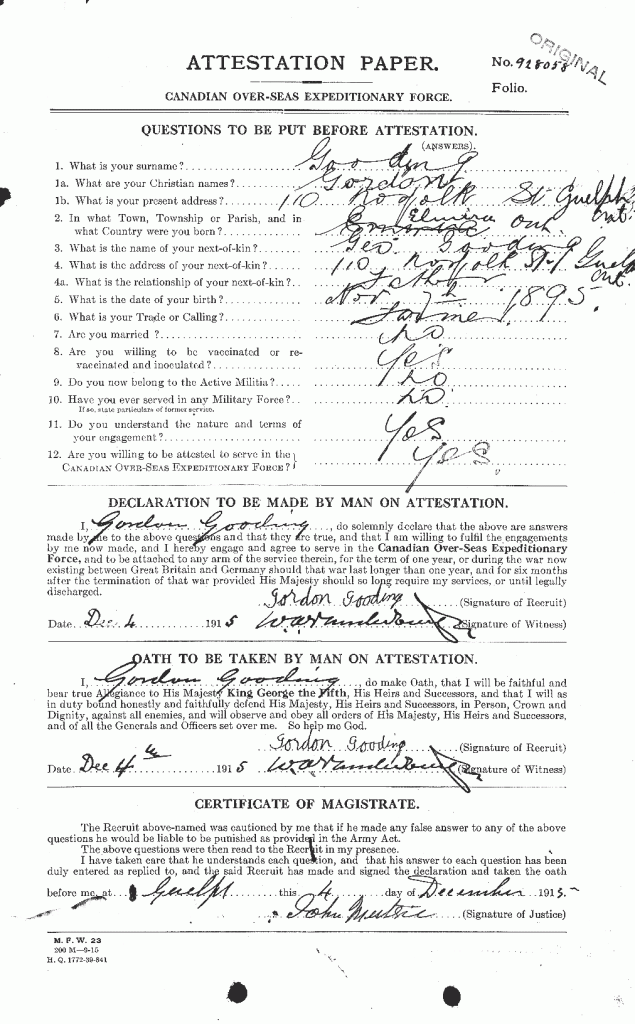 ORIGINAL
ATTESTATION PAPER.
No. 928058
Folio.
CANADIAN OVER-SEAS EXPEDITIONARY FORCE.
QUESTIONS TO BE PUT BEFORE ATTESTATION.
(ANSWERS).
1. What is your surname? Gooding
1a. What are your Christian names? Gordon
1b. What is your present address? 110 Norfolk St. Guelph Ont.
2. In what Town, Township or Parish, and in
what Country were you born? Elmira Ont.
3. What is the name of your next-of-kin? Geo. Gooding
4. What is the address of your next-of-kin? 110 Norfolk St. Guelph Ont.
4a. What is the relationship of your next-of-kin? Father
5. What is the date of your birth? Nov 7th 1895.
6. What is your Trade or Calling? Farmer
7. Are you married? No
8. Are you willing to be vaccinated or re-
vaccinated and inoculated? Yes
9. Do you now belong to the Active Militia? No
10. Have you ever served in any Military Force? No
If so, state particulars of former service.
11. Do you understand the nature and terms of
your engagement? Yes
12. Are you willing to be attested to serve in the
CANADIAN OVER-SEAS EXPEDITIONARY FORCE? Yes.
DECLARATION TO BE MADE BY MAN ON ATTESTATION.
I, Gordon Gooding, do solemnly declare that the above are answers
made by me to the above questions and that they are true, and that I am willing to fulfil the engagements
by me now made, and I hereby engage and agree to serve in the Canadian Over-Seas Expeditionary
Force, and to be attached to any arm of the service therein, for the term of one year, or during the war now
existing between Great Britain and Germany should that war last longer than one year, and for six months
after the termination of that war provided His Majesty should so long require my services, or until legally
discharged.
Gordon Gooding (Signature of Recruit)
Date Dec 4 1915 (Signature of Witness)
OATH TO BE TAKEN BY MAN ON ATTESTATION.
I, Gordon Gooding, do make Oath, that I will be faithful and
bear true Allegiance to His Majesty King George the Fifth, His Heirs and Successors, and that I will as
in duty bound honestly and faithfully defend His Majesty, His Heirs and Successors, in Person, Crown and
Dignity, against all enemies, and will observe and obey all orders of His Majesty, His Heirs and Successors,
and of all the Generals and Officers set over me. So help me God.
Gordon Gooding (Signature of Recruit)
Date Dec 4th 1915 (Signature of Witness)
CERTIFICATE OF MAGISTRATE.
The Recruit above-named was cautioned by me that if he made any false answer to any of the above
questions he would be liable to be punished as provided in the Army Act.
The above questions were then read to the Recruit in my presence.
I have taken care that he understands each question, and that his answer to each question has been
duly entered as replied to, and the said Recruit has made and signed the declaration and taken the oath
before me, at Guelph this 4 day of December 1915
John (Signature of Justice)
M. F. W. 23
200 M—9-15
H. Q. 1772-39-841